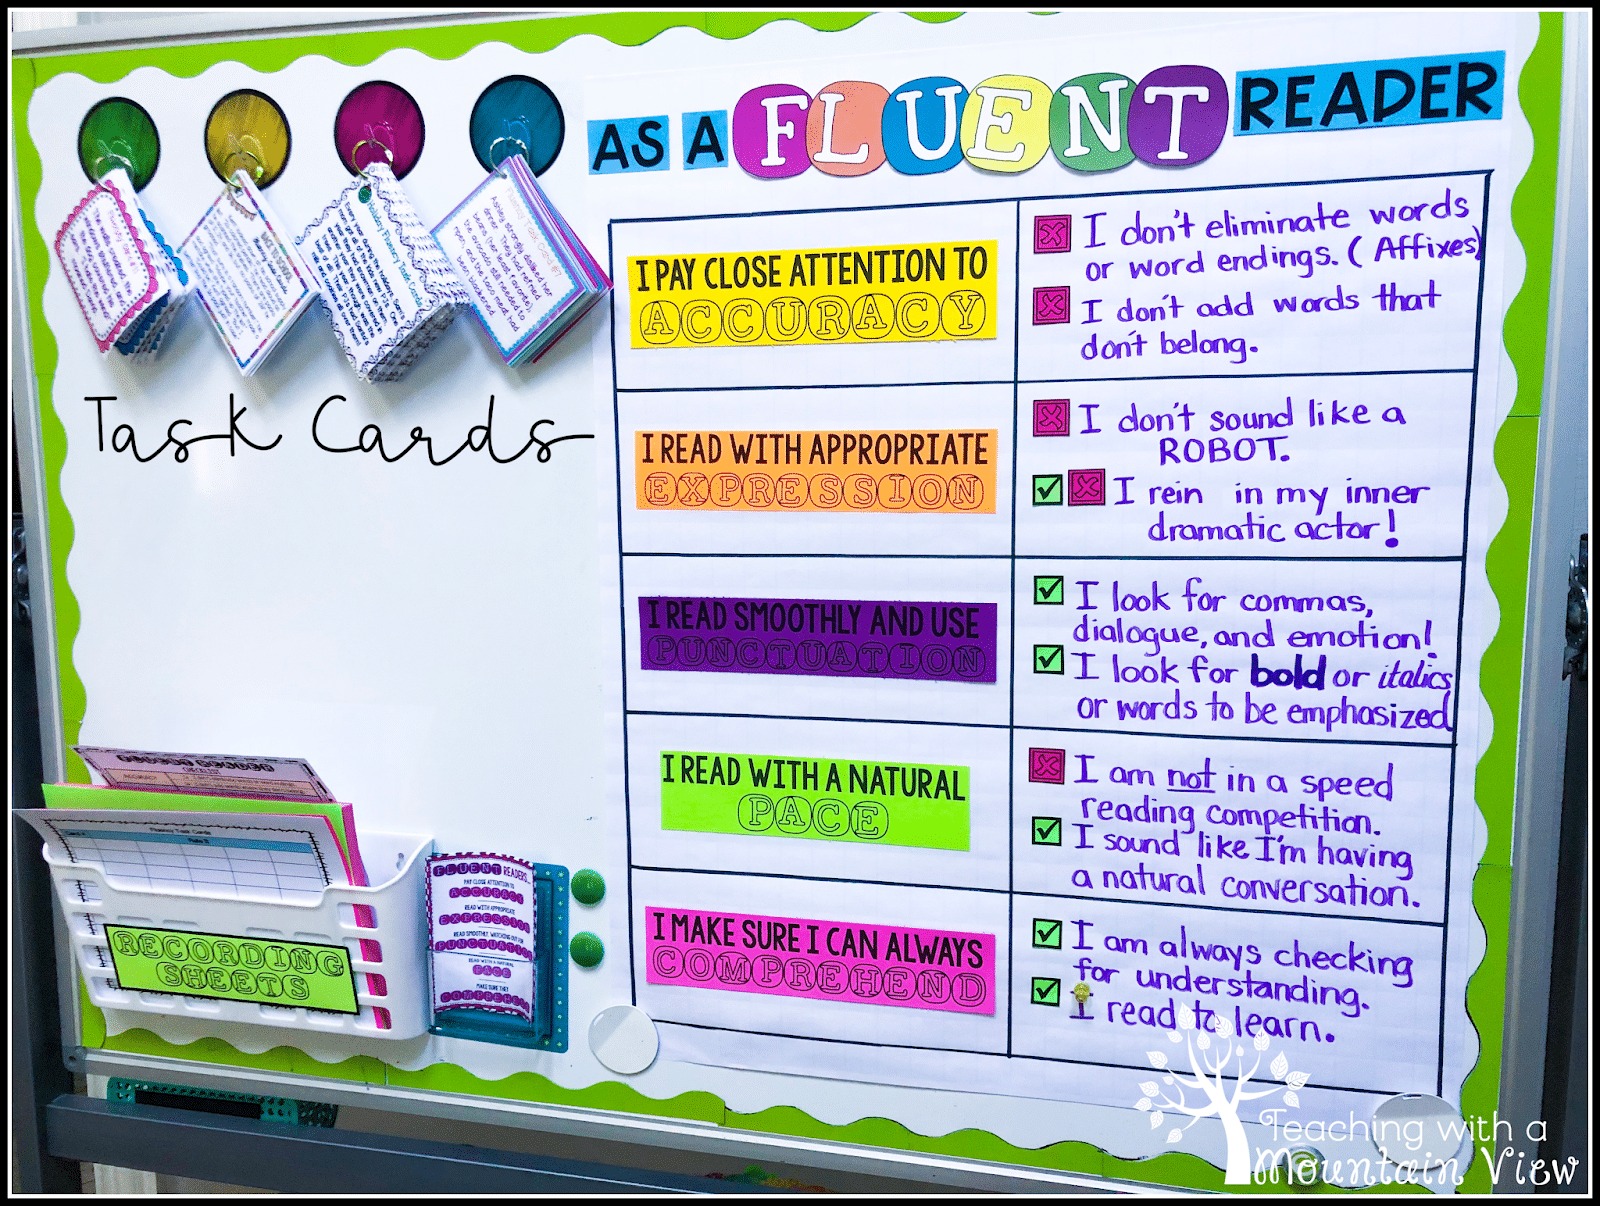 AS A FLUENT READER
I PAY CLOSE ATTENTION TO
ACCURACY
I don't eliminate words
or word endings. (Affixes)
I don't add words that
don't belong.
I READ WITH APPROPRIATE
EXPRESSION
I don't sound like a
ROBOT.
I rein in my inner
dramatic actor!
I READ SMOOTHLY AND USE
PUNCTUATION
I look for commas,
dialogue, and emotion!
I look for bold or italics
or words to be emphasized
I READ WITH A NATURAL
PACE
I am not in a speed
reading competition.
I sound like I'm having
a natural conversation.
I MAKE SURE I CAN ALWAYS
COMPREHEND
I am always checking
for understanding.
I read to learn.
Task Cards
Fluency Task Card #7
Ashley strongly disliked her
CHECKLIST
ACCURACY
Fluency Task Cards
RECORDING
SHEETS
FLUENT READERS...
PAY CLOSE ATTENTION TO
ACCURACY
READ WITH APPROPRIATE
EXPRESSION
READ SMOOTHLY, WATCHING OUT FOR
PUNCTUATION
READ WITH A NATURAL
PACE
MAKE SURE THEY
COMPREHEND
Teaching with a
Mountain View